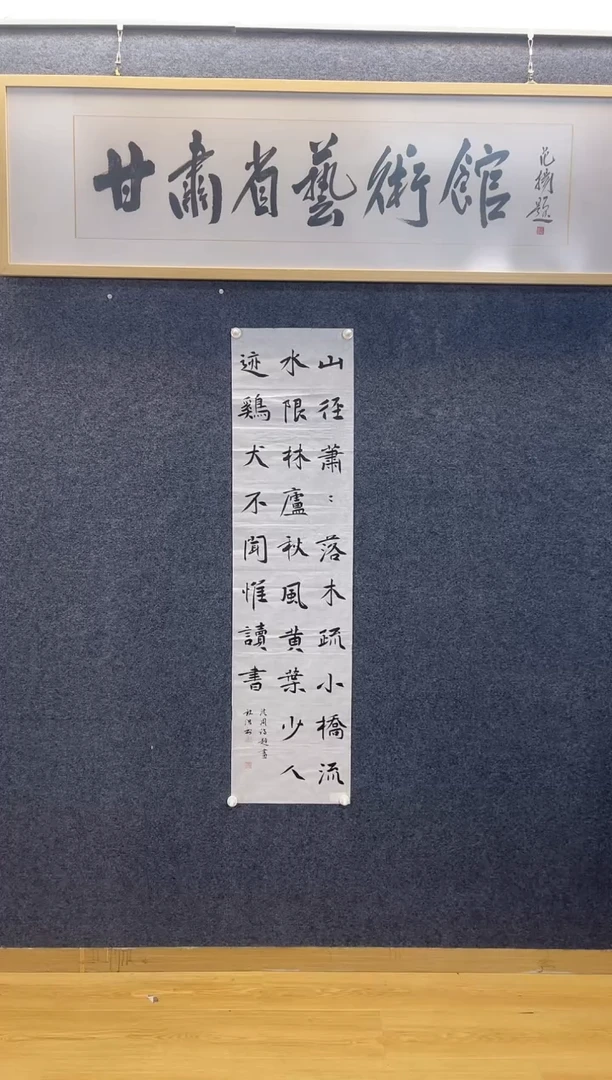 甘肅省藝術館
范振題
山径蕭：落木疏小橋流
水限林廬秋風黄葉少人
迹鷄犬不聞惟讀書
沈周詩題畫